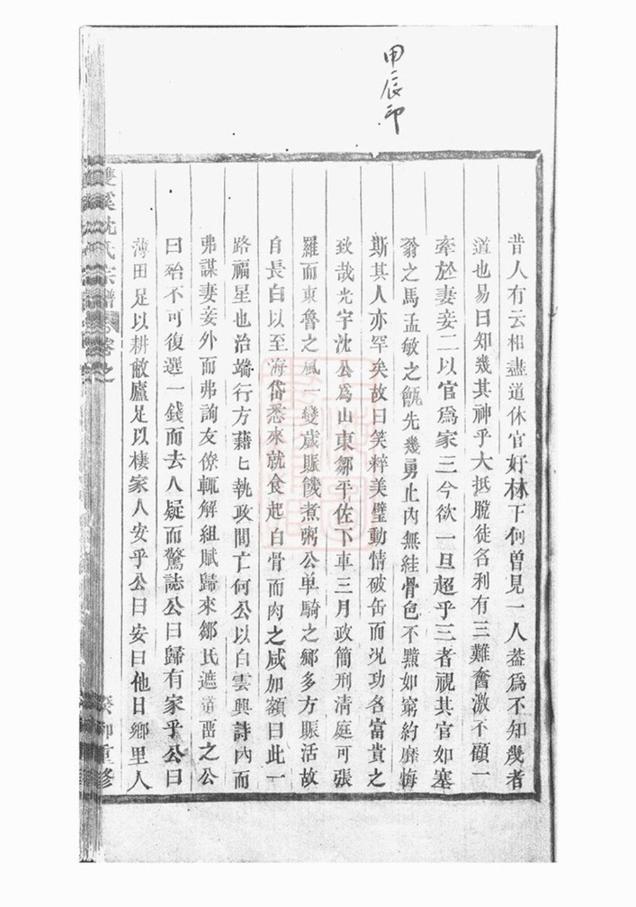 甲辰卯
昔人有云相盡道休官好林下何曾見一人葢爲不知幾者
道也易曰知幾其神乎大抵脫徒名利有三難奮激不顧一
牽於妻妾二以官爲家三今欲一旦超乎三者視其官如塞
翁之馬孟敏之甑先幾勇止內無絓骨色不黯如窮約靡悔
斯其人亦罕矣故曰笑粹美璧動情破缶而況功名富貴之
致哉光宇沈公爲山東鄒平佐下車三月政簡刑清庭可張
羅而東魯之風一變歲賑饑煮粥公單騎之鄉多方賑活故
自長白以至海岱悉來就食起白骨而肉之咸加額曰此一
路福星也治端行方藉匕執政間亡何公以白雲興詩內而
弗謀妻妾外而弗詢友僚輒解組賦歸來鄒氏遮道畱之公
曰殆不可復選一錢而去人疑而驚誌公曰歸有家乎公曰
薄田足以耕敝廬足以棲家人安乎公曰安曰他日鄉里人
雙溪沈氏宗譜
卷之
重修